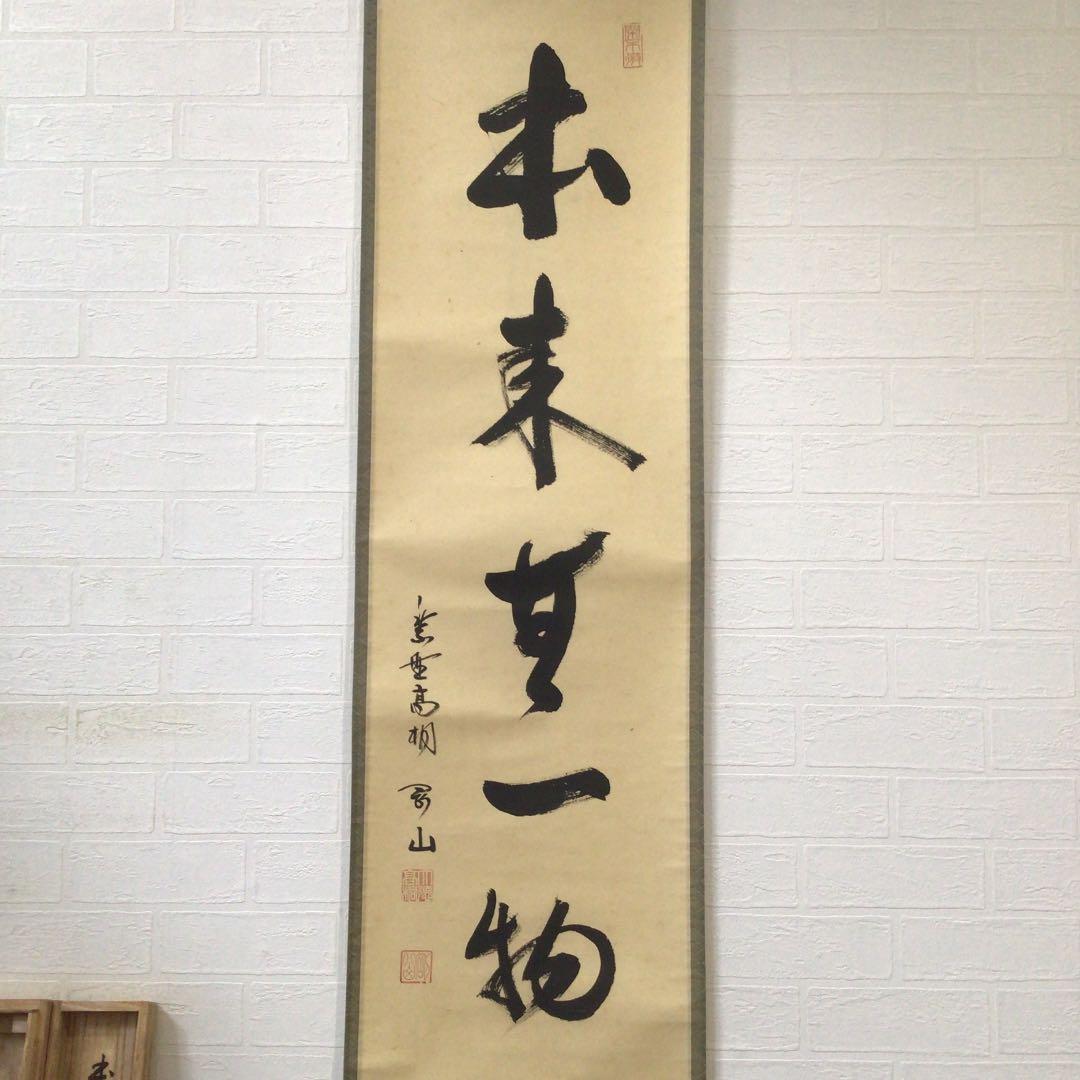 本来無一物
紫野高桐 剛山
本